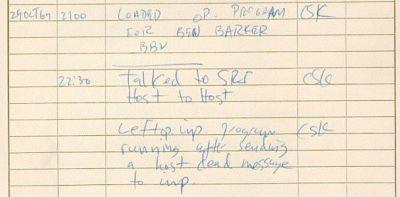 29 OCT 69 2100 LOADED OP. PROGRAM CSK
FOR BEN BARKER
BBN
22:30 Talked to SRI CSK
Host to Host
Left op. imp. program CSK
running after sending
a host dead message
to imp.